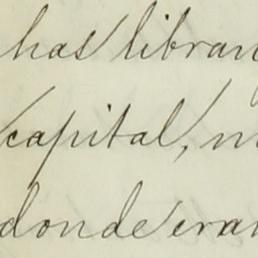 has libran
capital,
donde eran